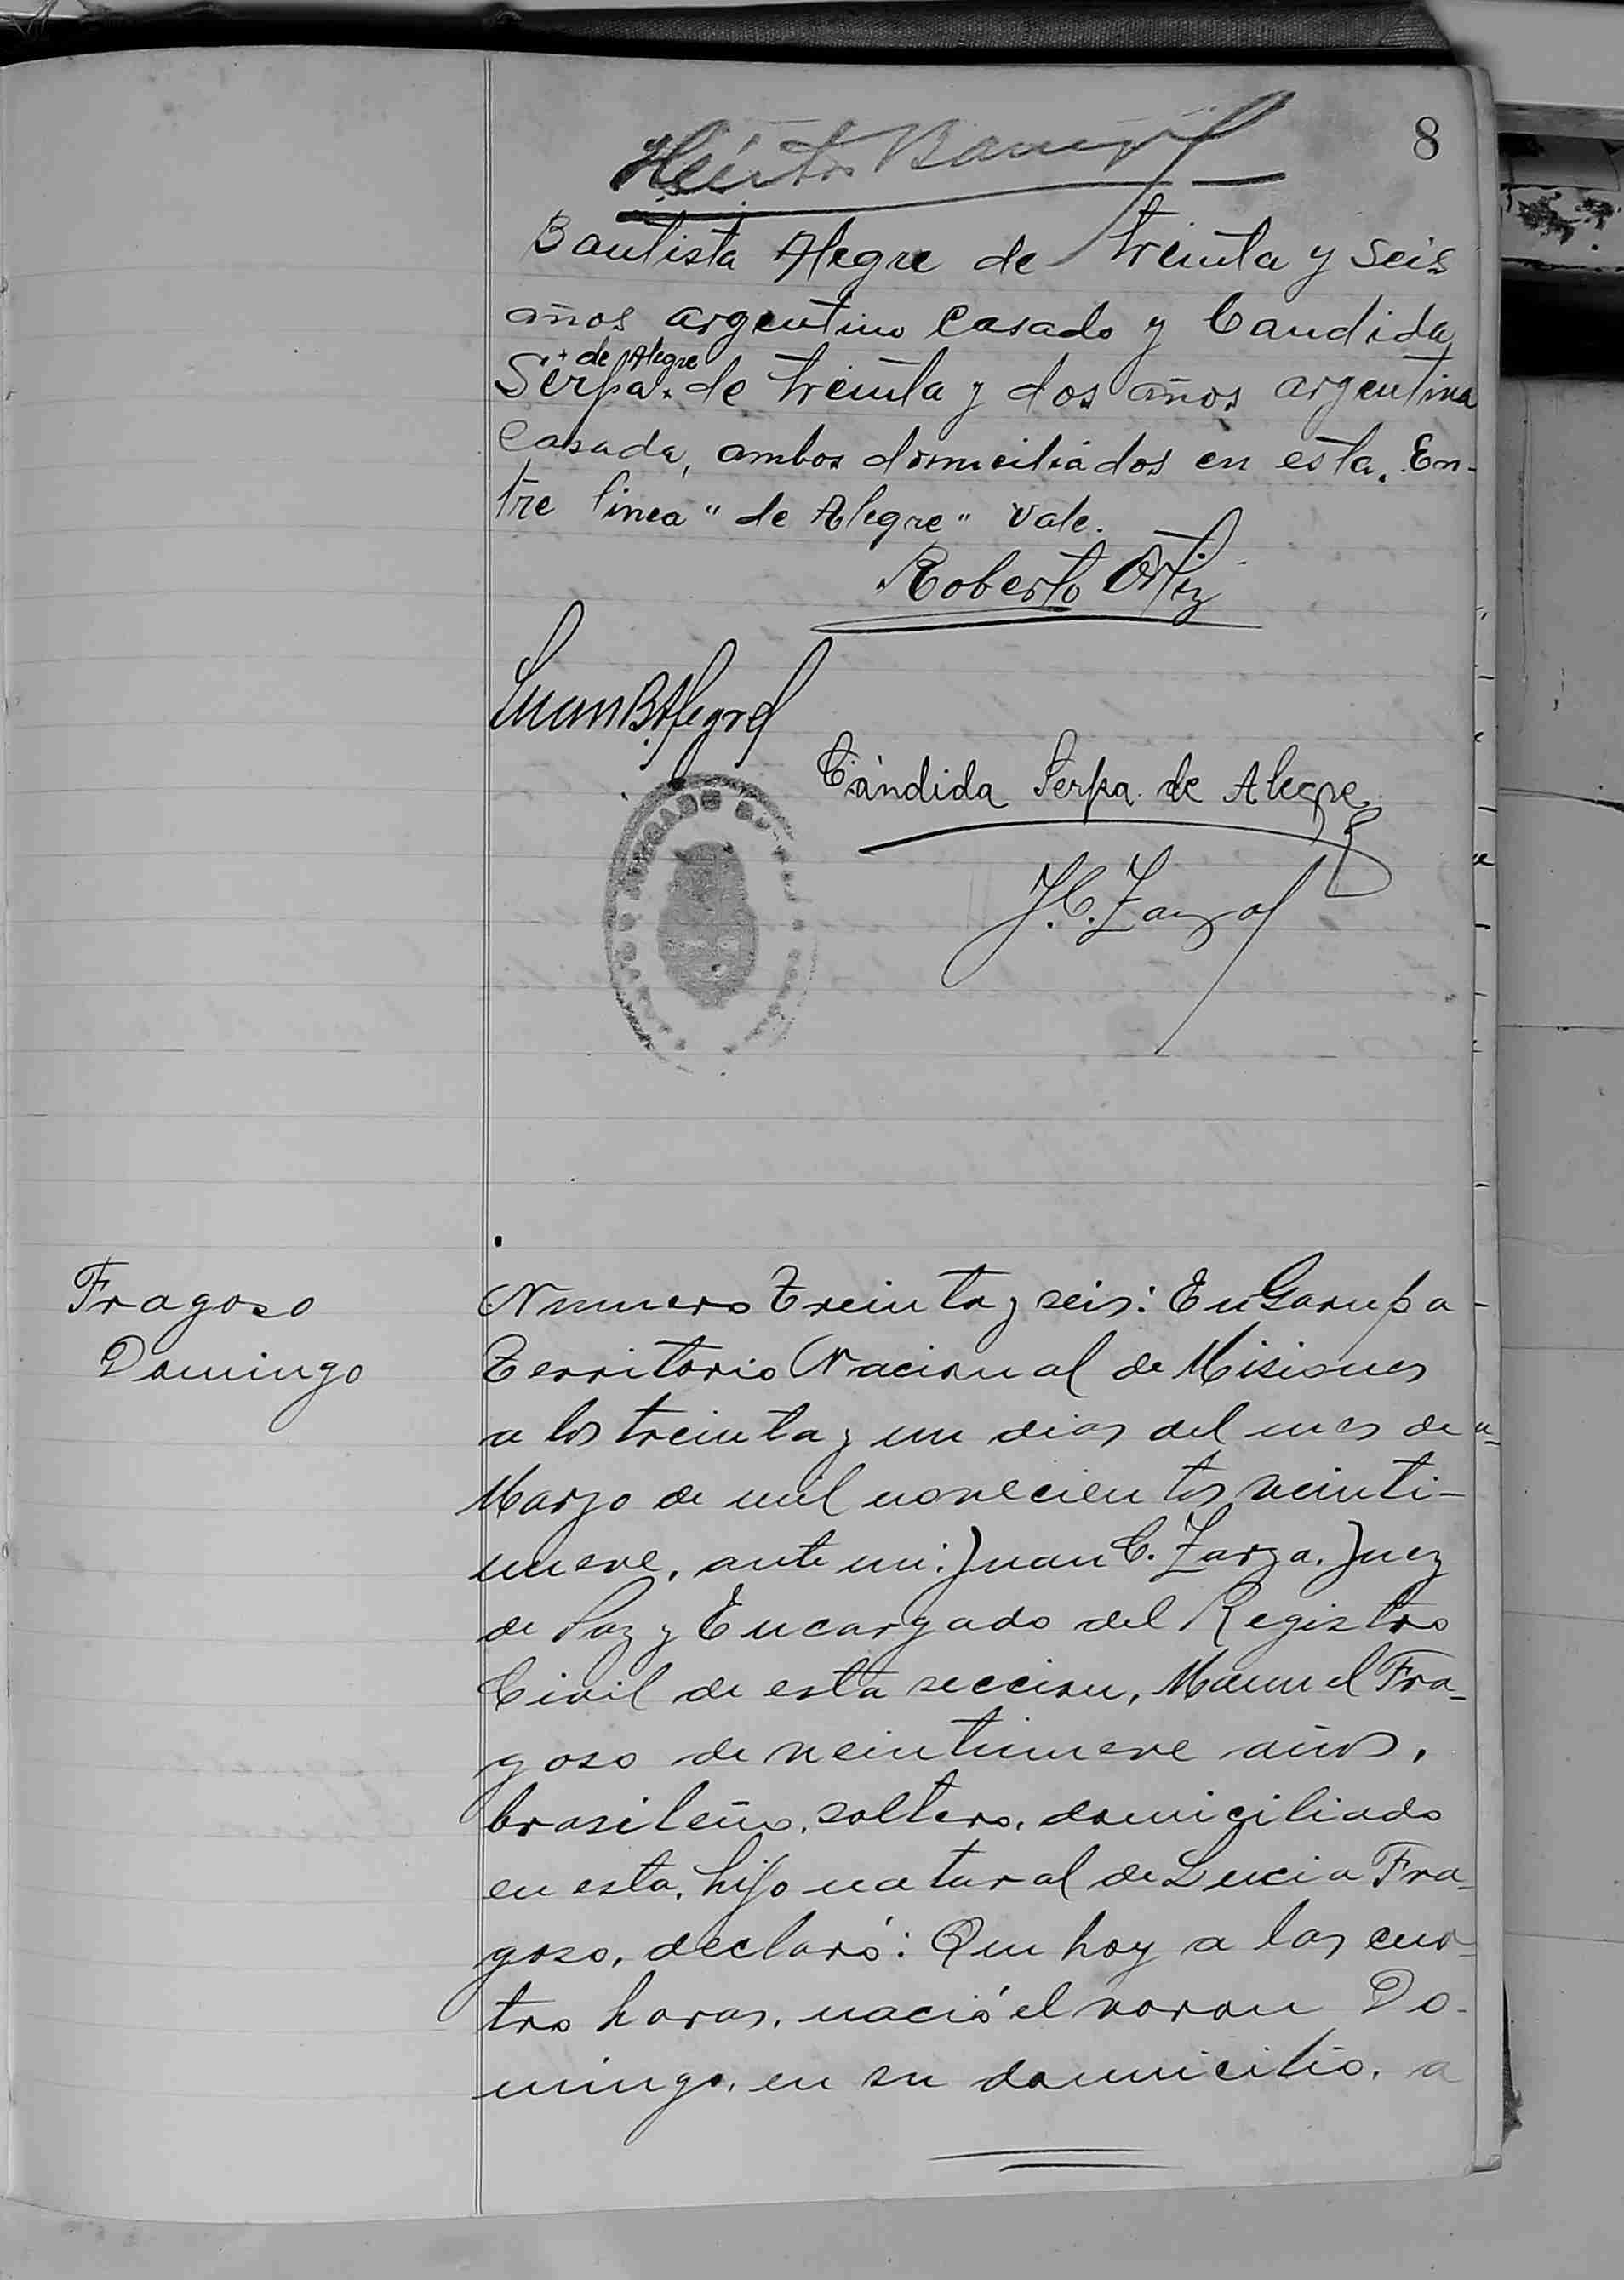 8
Bautista Alegre de treinta y seis
años argentino Casado y Candida
de Alegre
Serpa x de treinta y dos años argentina
Casada, ambos domiciliados en esta. En-
tre linea "de Alegre" Vale.
Roberto Ortiz
Juan B Alegre
Cándida Serpa de Alegre
J. C. Zarza
Fragoso
Domingo
Numero Treinta y seis: En Garupa
Territorio Nacional de Misiones
a los treinta y un dias del mes de
Marzo de mil novecientos veinti-
nueve, ante mi: Juan C. Zarza. Juez
de Paz y Encargado del Registro
Civil de esta seccion, Manuel Fra-
goso de veintinueve años,
brasileño, soltero, domiciliado
en esta, hijo natural de Lucia Fra-
goso, declaró: Que hoy a las cua-
tro horas, nació el varon Do-
mingo, en su domicilio, a